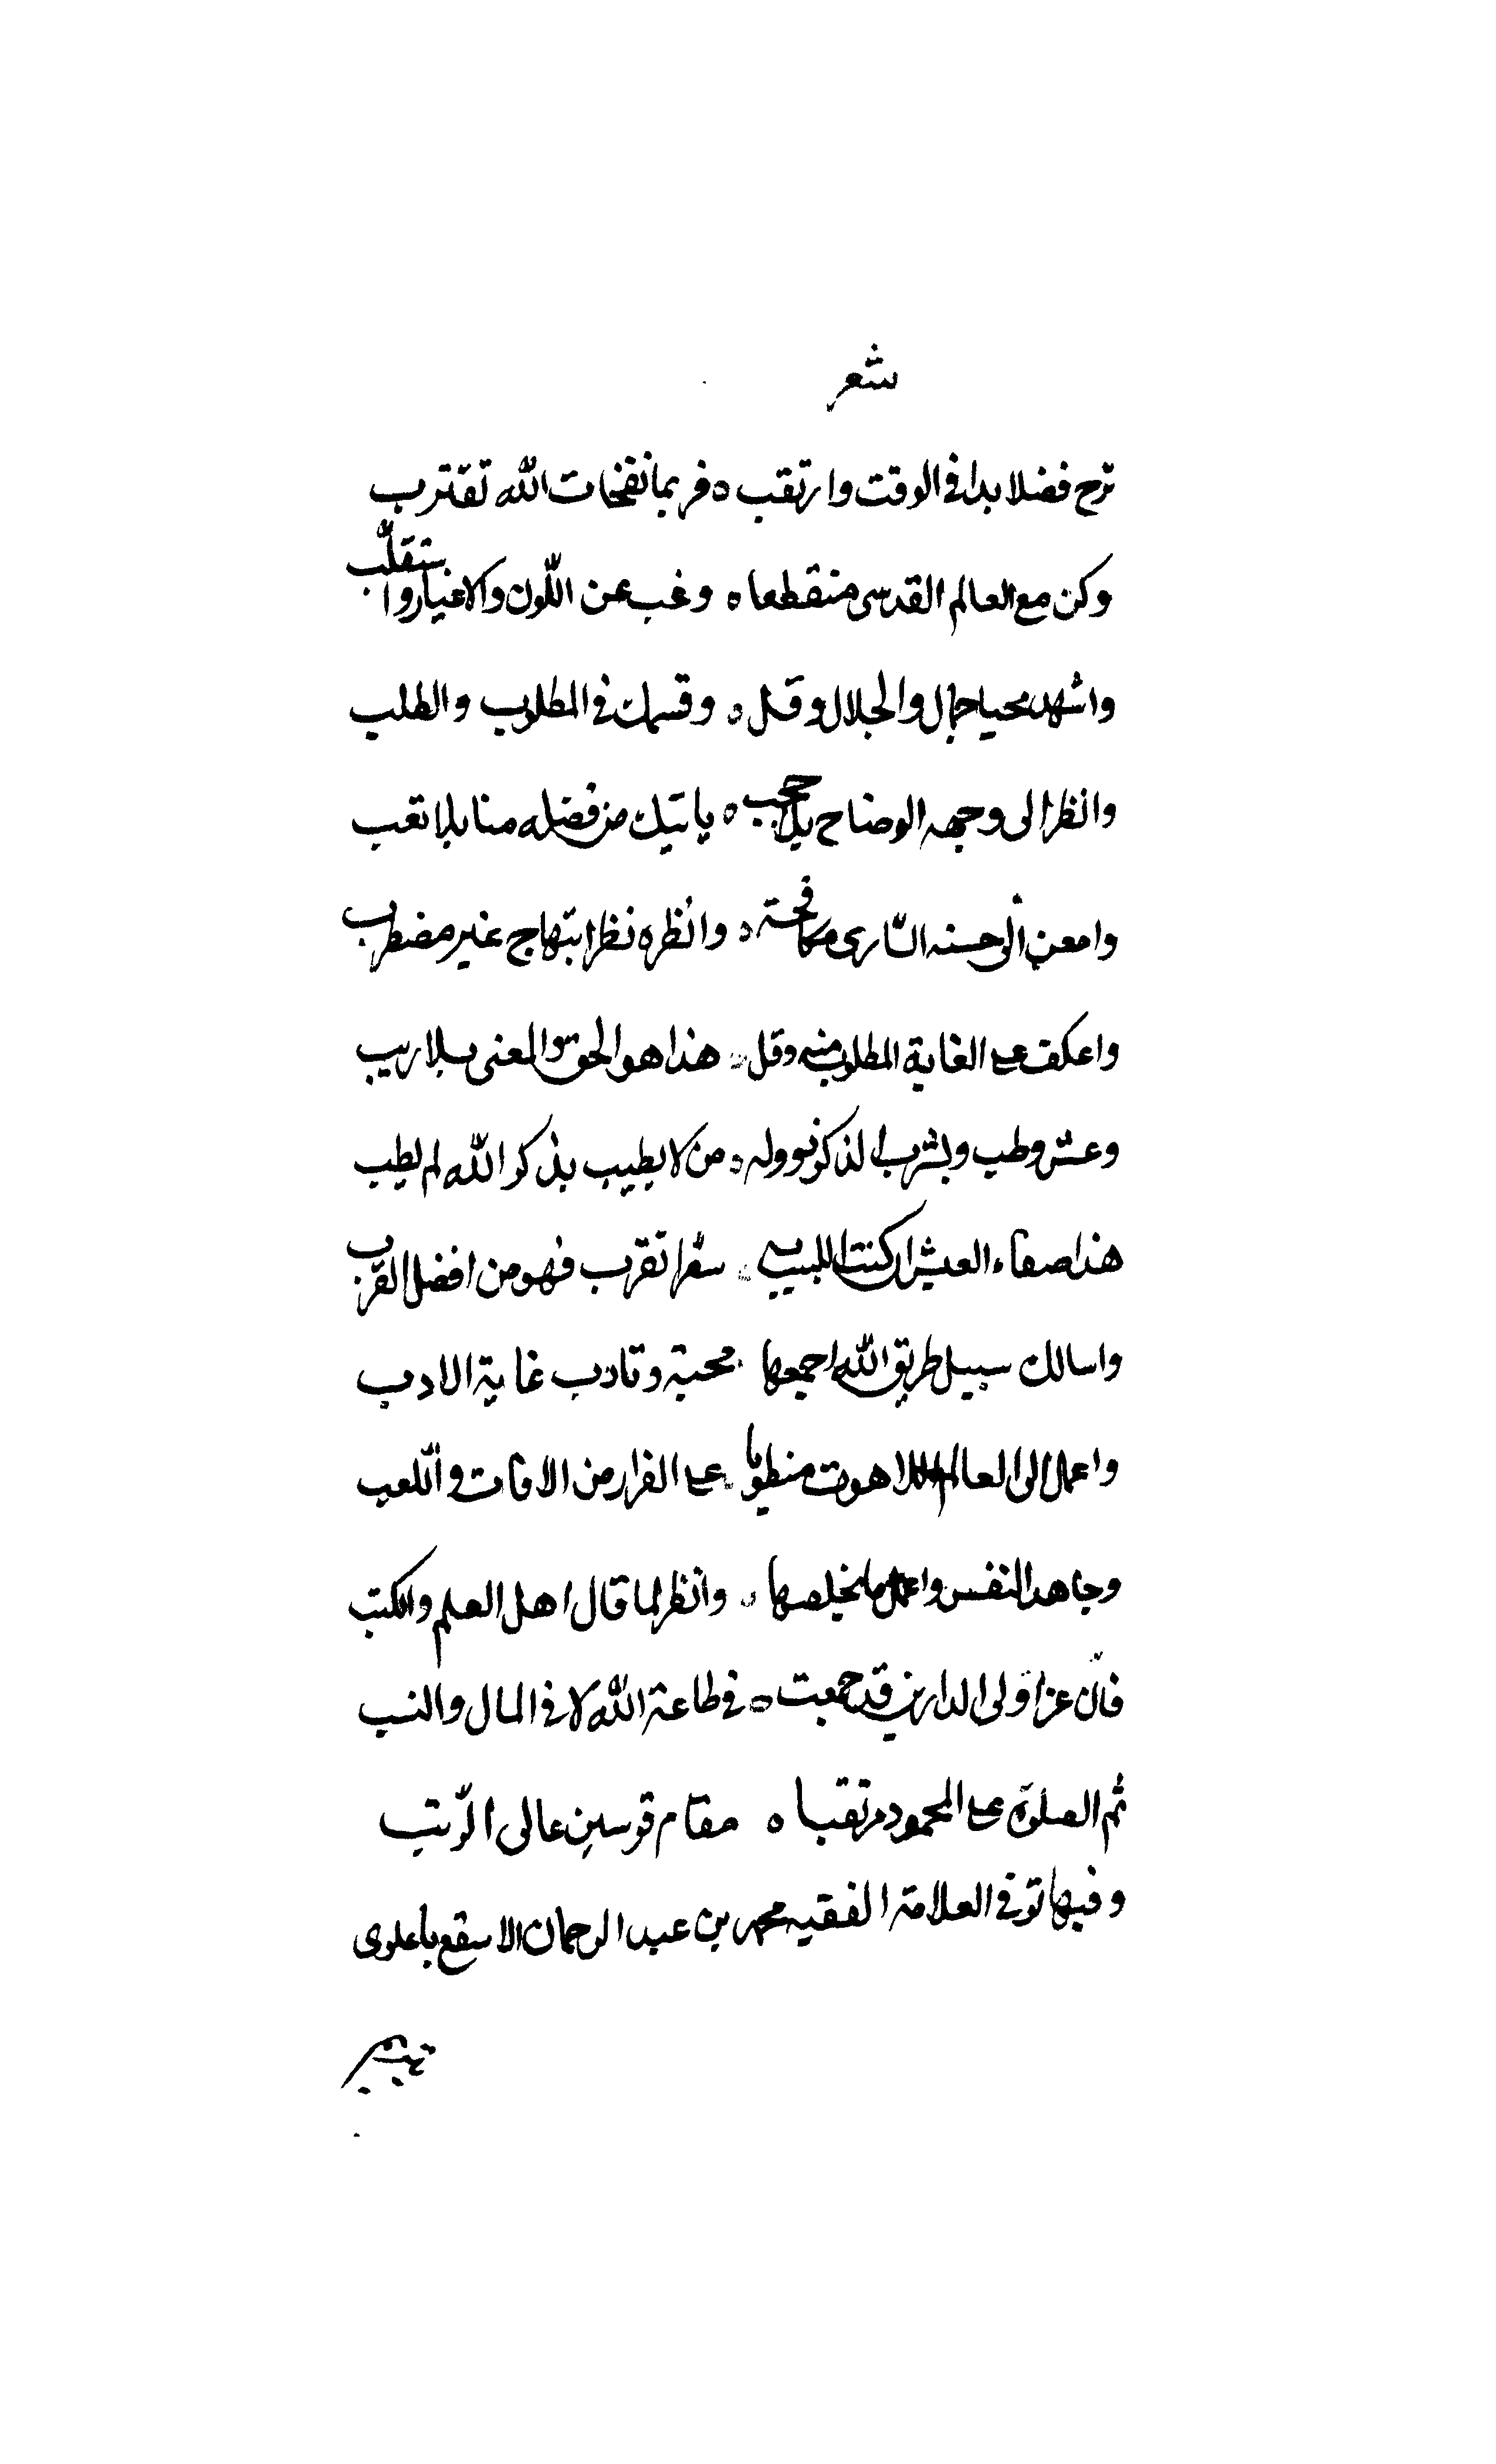 شعر
ترج فضلا بدا في الوقت وارتقب ه فربما نفحات الله تقترب
وكن مع العالم القدسي منقطعا ه وغب عن اللون والاغيار واستقلب
واشهد محيا جمال والجلال وقل ه وقسمك في المطلوب والطلب
وانظر الى وجهه الوضاح بلا حجب ه ياتيك من فضله منا بلا تعب
وامعن الى حسنه الساري مكافحة ه وانظره نظر ابتهاج غير مضطرب
واعكف على الغاية المطلوب منه وقل ه هذا هو الحق والمعنى بلا ريب
وعش وطب وبشرب الذكر نو وله ه من لا يطيب بذكر الله لم يطب
هذا صفاء العيش ان كنت اللبيب به سفرا تقرب فهو من افضل القرب
واسالك سبيل طريق الله اجمعها محبة وتادب غاية الادب
واعمل الى العالم اللاهوت منطويا على الفرار من الافات واللعب
وجاهد النفس واعمل ما يخلصها ه وانظر لما قال اهل العلم والكتب
فان عز اولى الدارين قد جمعت ه في طاعة الله لا في المال والنسب
ثم الصلوة على المحمود مرتقبا ه مقام قوسين عالى الرتب
وفيها توفي العلامة الفقيه محمد بن عبد الرحمان الاسقع باعلوى